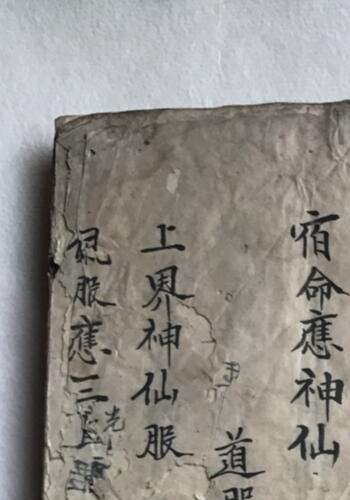 宿命應神仙
道服
上界神仙服
服應三